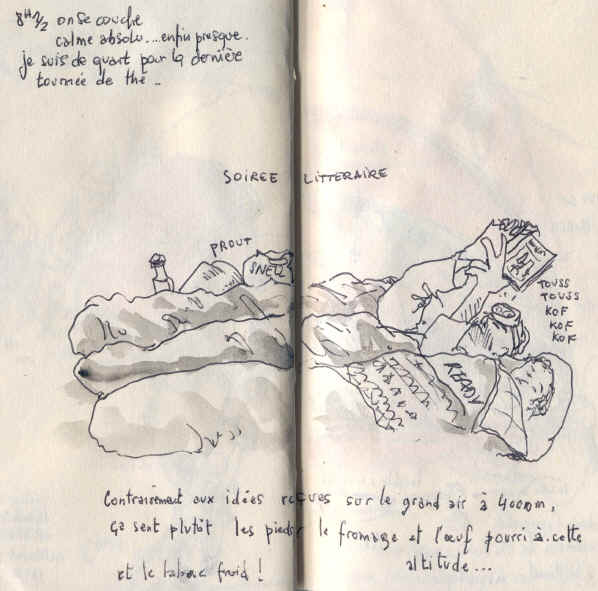 8H 1/2 on se couche
calme absolu... enfin presque.
je suis de quart pour la dernière
tournée de thé..
SOIREE LITTERAIRE
PROUT
SNELL
TOUSS
TOUSS
KOF
KOF
KOF
READY
Contrairement aux idées reçues sur le grand air à 4000m,
ça sent plutôt les pieds, le fromage et l'œuf pourri à cette
altitude...
et le tabac froid !